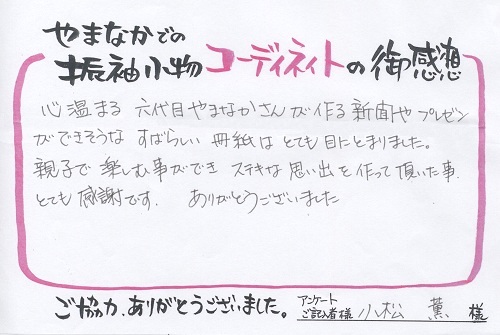 やまなかでの
振袖小物コーディネイトの御感想
心温まる 六代目やまなかさんが作る新聞や プレゼン
ができそうな すばらしい 冊紙は とても目にとまりました。
親子で 楽しむ事ができ ステキな 思い出を 作って頂いた事、
とても 感謝です. ありがとうございました
ご協力、ありがとうございました。
アンケート
ご記入者様 小松 薫 様